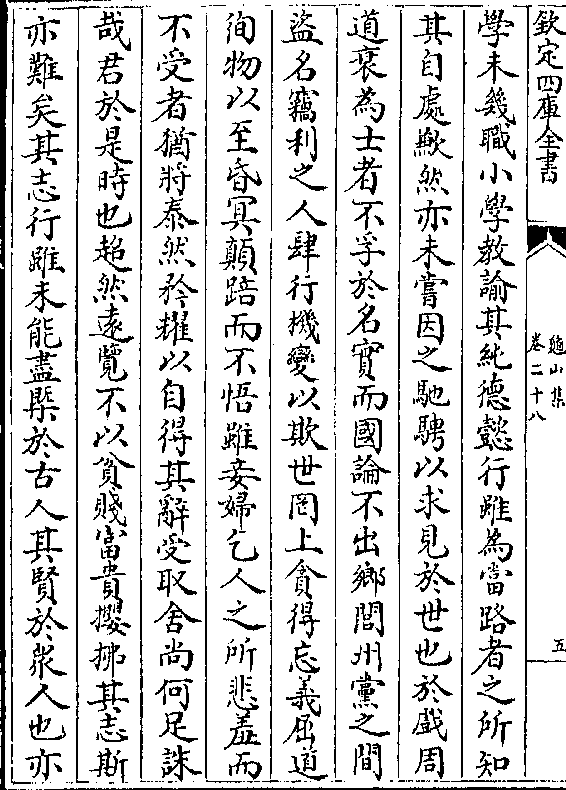 欽定四庫全書
龜山集
卷二十八
五
學未幾職小學教諭其純德懿行雖為當路者之所知
其自處歉然亦未嘗因之馳騁以求見於世也於戲周
道衰為士者不孚於名實而國論不出鄉閭州黨之間
盜名竊利之人肆行機變以欺世罔上貪得忘義屈道
徇物以至昏冥顛踣而不悟雖妾婦乞人之所悲羞而
不受者猶將泰然矜耀以自得其辭受取舍尚何足誅
哉君於是時也超然遠覽不以貧賤富貴攖拂其志斯
亦難矣其志行雖未能盡槩於古人其賢於衆人也亦